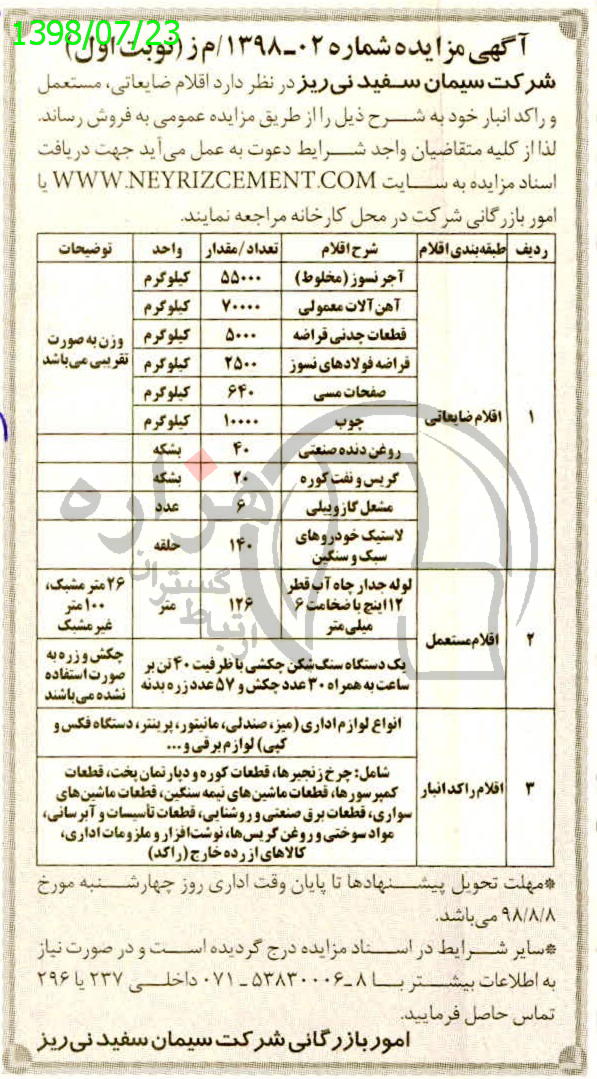 1398/07/23
آگهی مزایده شماره ۰۲-۱۳۹۸/م ز (نوبت اول)
شرکت سیمان سفید نی‌ریز در نظر دارد اقلام ضایعاتی، مستعمل
و راکد انبار خود به شرح ذیل را از طریق مزایده عمومی به فروش رساند.
لذا از کلیه متقاضیان واجد شرایط دعوت به عمل می‌آید جهت دریافت
اسناد مزایده به سایت WWW.NEYRIZCEMENT.COM یا
امور بازرگانی شرکت در محل کارخانه مراجعه نمایند.
ردیف طبقه‌بندی اقلام شرح اقلام تعداد/مقدار واحد توضیحات
۱ اقلام ضایعاتی
آجر نسوز (مخلوط) ۵۵۰۰۰ کیلوگرم
آهن‌آلات معمولی ۷۰۰۰۰ کیلوگرم
قطعات چدنی قراضه ۵۰۰۰ کیلوگرم
قراضه فولادهای نسوز ۲۵۰۰ کیلوگرم
صفحات مسی ۶۴۰ کیلوگرم
چوب ۱۰۰۰۰ کیلوگرم
وزن به صورت
تقریبی می‌باشد
روغن دنده صنعتی ۴۰ بشکه
گریس و نفت کوره ۲۰ بشکه
مشعل گازوییلی ۶ عدد
لاستیک خودروهای
سبک و سنگین ۱۴۰ حلقه
۲ اقلام مستعمل
لوله جدار چاه آب قطر
۱۲ اینچ با ضخامت ۶
میلی‌متر
۱۲۶ متر
۲۶ متر مشبک،
۱۰۰ متر
غیر مشبک
یک دستگاه سنگ‌شکن چکشی با ظرفیت ۴۰ تن بر
ساعت به همراه ۳۰ عدد چکش و ۵۷ عدد زره بدنه
چکش و زره به
صورت استفاده
نشده می‌باشند
۳ اقلام راکد انبار
انواع لوازم اداری (میز، صندلی، مانیتور، پرینتر، دستگاه فکس و
کپی) لوازم برقی و...
شامل: چرخ زنجیرها، قطعات کوره و دپارتمان پخت، قطعات
کمپرسورها، قطعات ماشین‌های نیمه سنگین، قطعات ماشین‌های
سواری، قطعات برق صنعتی و روشنایی، قطعات تأسیسات و آبرسانی،
مواد سوختی و روغن گریس‌ها، نوشت‌افزار و ملزومات اداری،
کالاهای از رده خارج (راکد)
*مهلت تحویل پیشنهادها تا پایان وقت اداری روز چهارشنبه مورخ
۹۸/۸/۸ می‌باشد.
*سایر شرایط در اسناد مزایده درج گردیده است و در صورت نیاز
به اطلاعات بیشتر با ۸-۵۳۸۳۰۰۰۶-۰۷۱ داخلی ۲۳۷ یا ۲۹۶
تماس حاصل فرمایید.
امور بازرگانی شرکت سیمان سفید نی‌ریز
هزاره
گستران
ارتباط